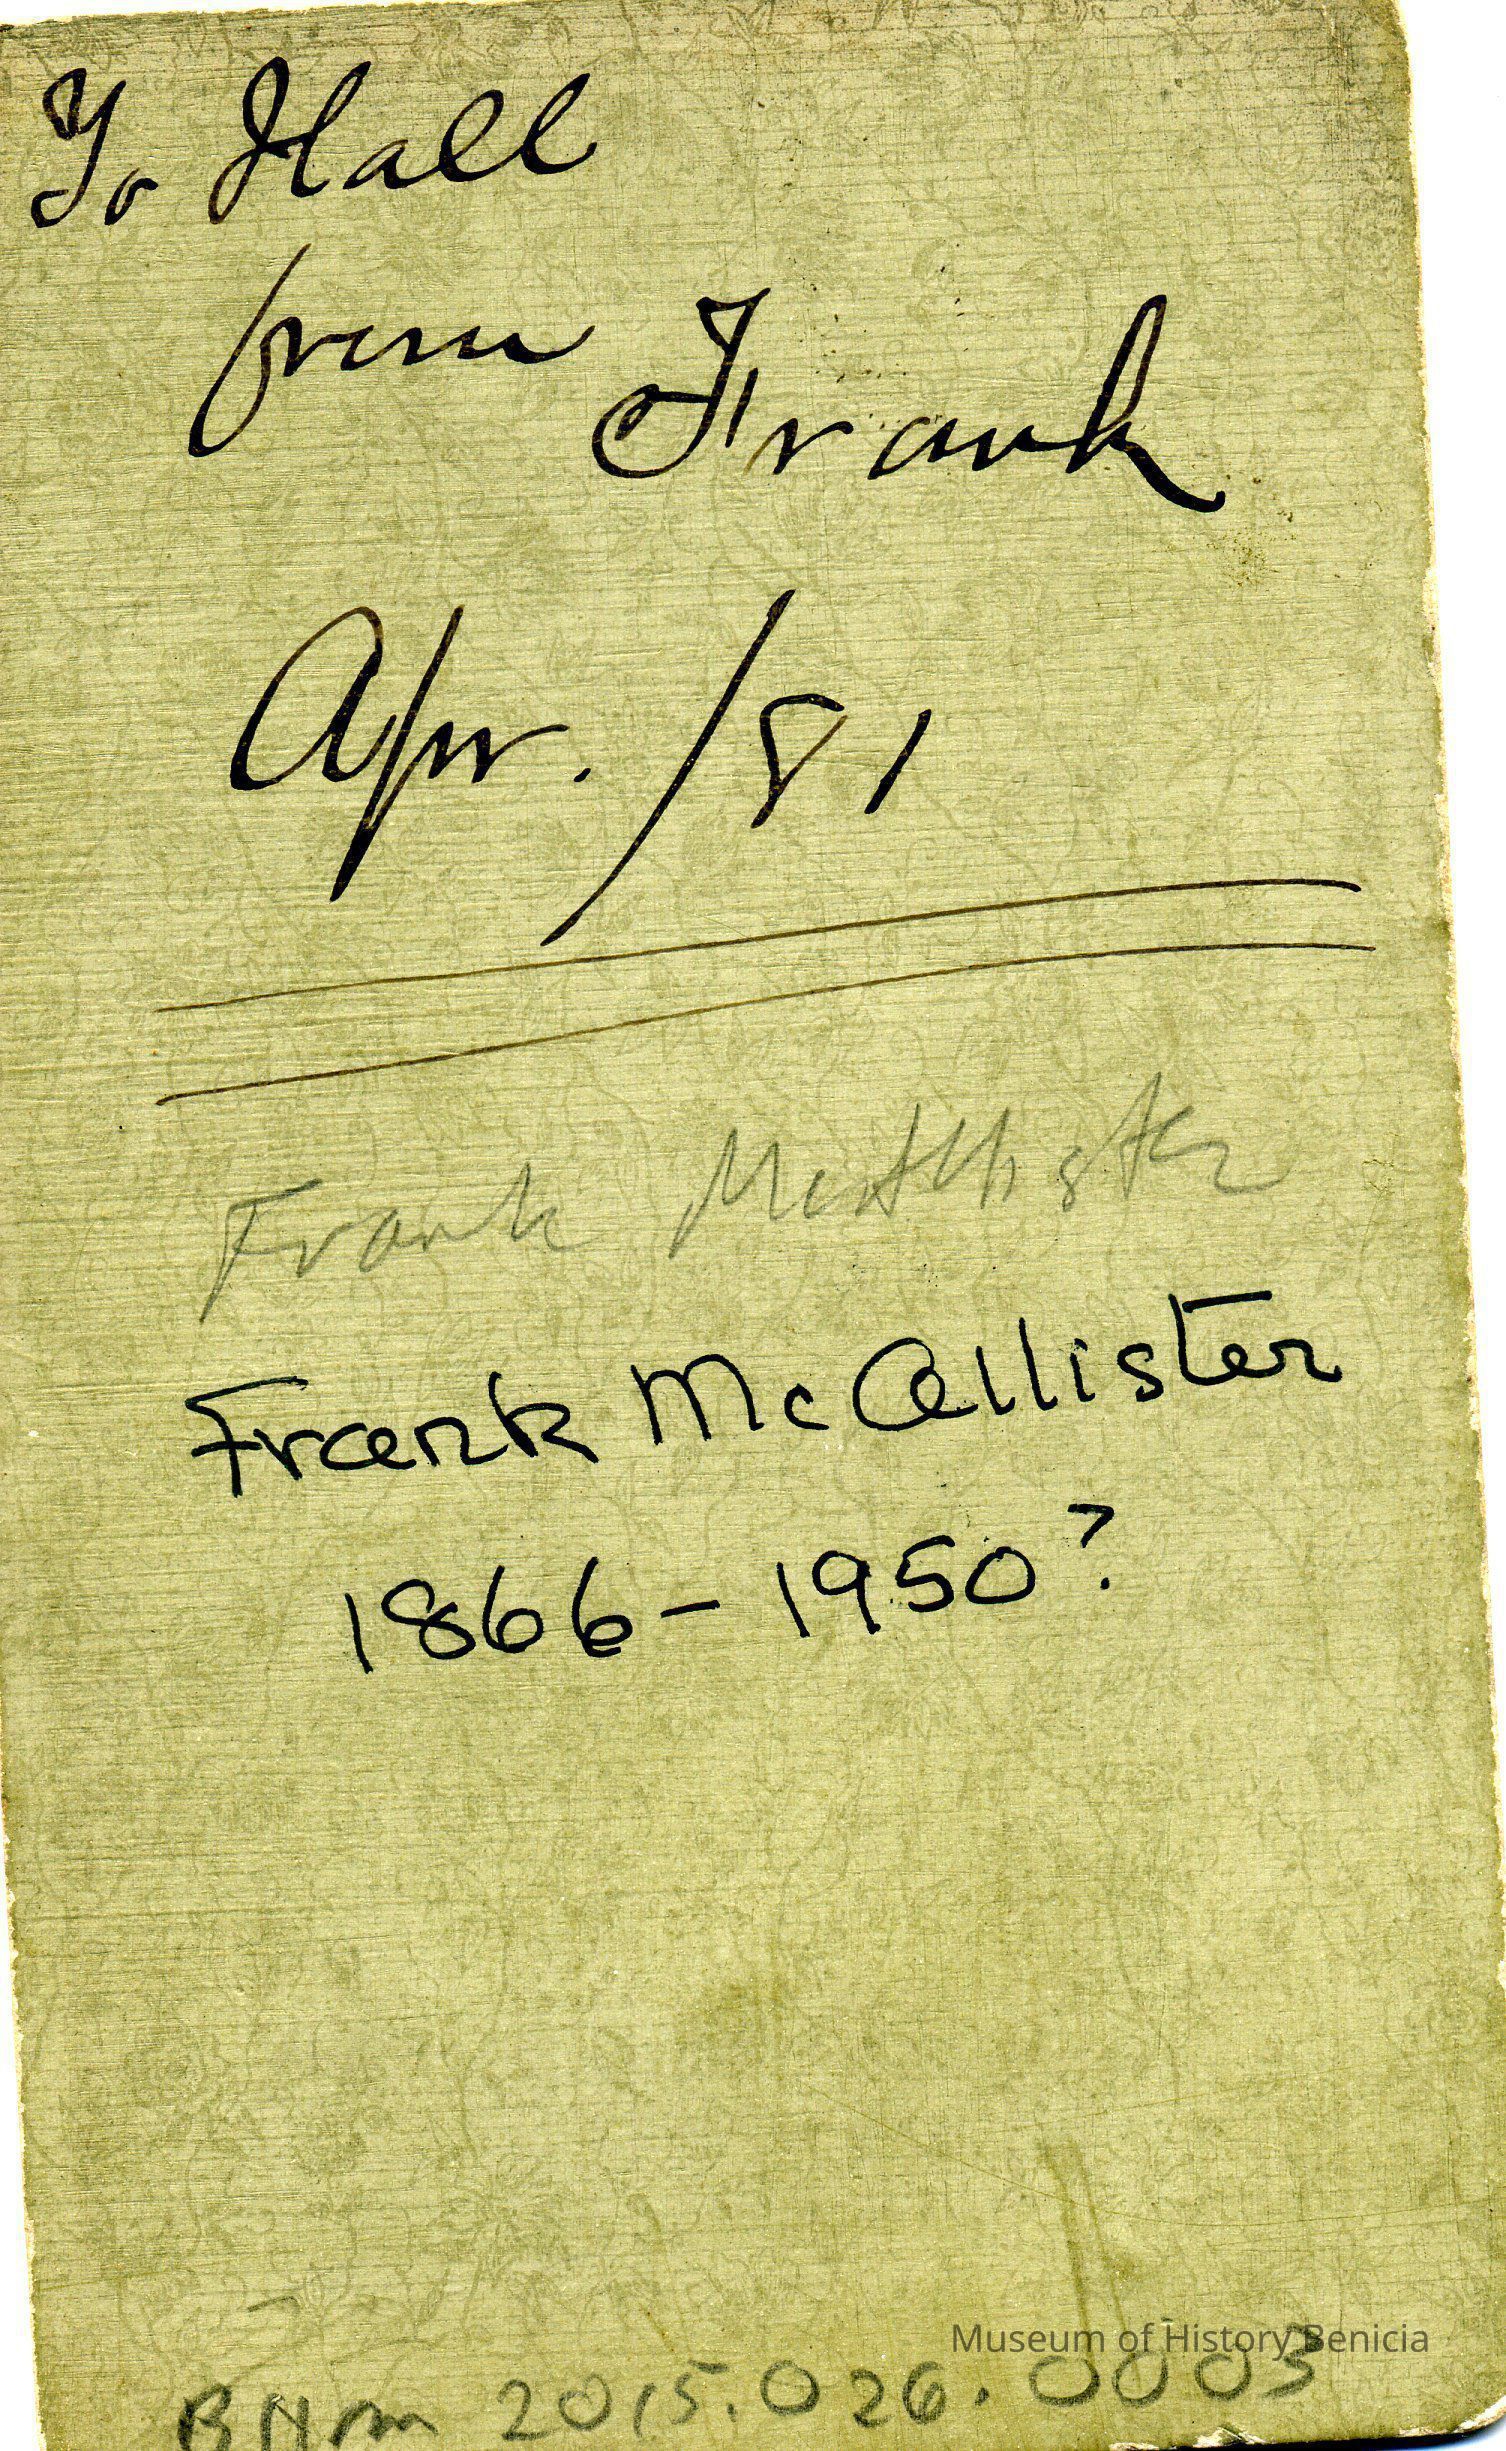 To Hall
from Frank
Apr. /81
Frank McAllister
Frank McAllister
1866-1950?
Museum of History Benicia
BHM 2015.026.0003